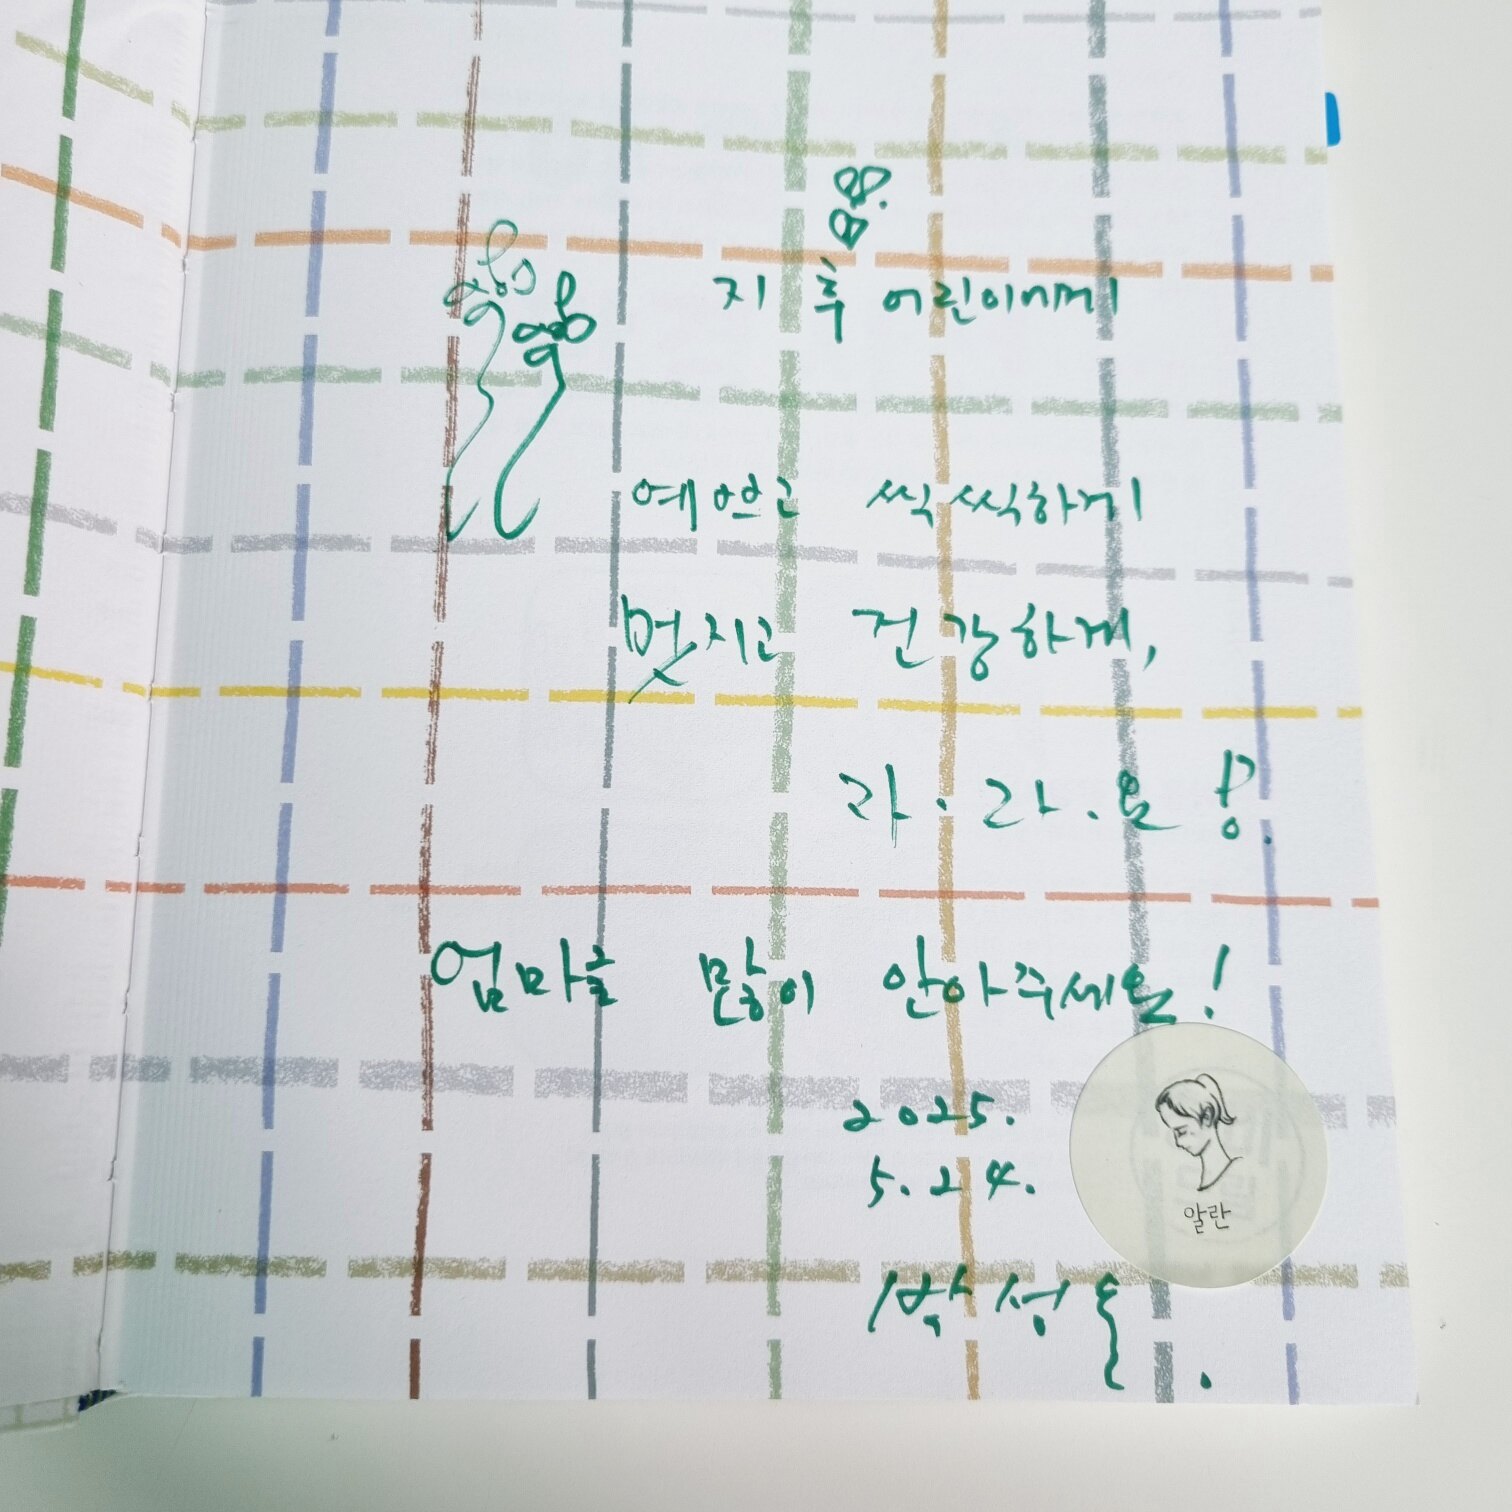 지후 어린이에게
예쁘고 씩씩하게
멋지고 건강하게,
라·라·요!
엄마를 많이 안아주세요!
2025.
5.24.
알란